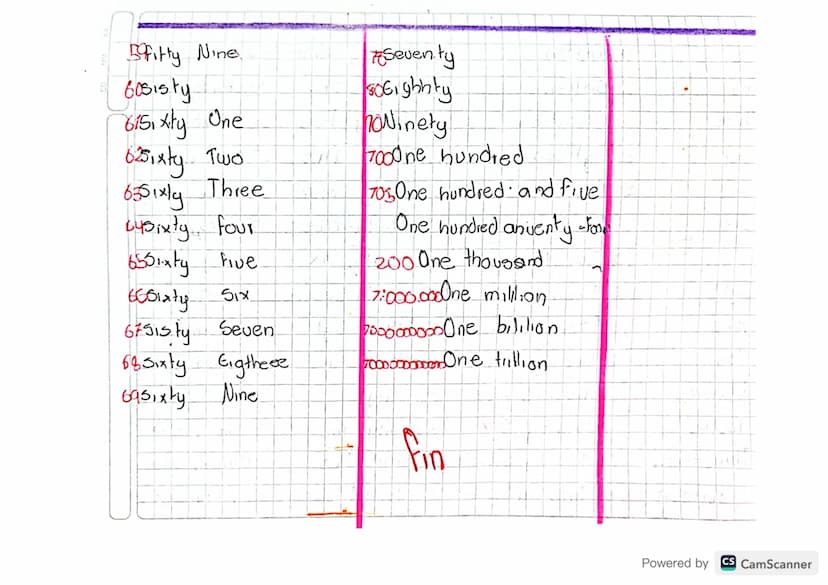 59 Fifty Nine
60 Sisty
61 Sixty One
62 Sixty Two
63 Sixty Three
64 Sixty Four
65 Sixty Five
66 Sixty Six
67 Sisty Seven
68 Sixty Eigtheez
69 Sixty Nine
70 Seventy
80 Eighhty
90 Ninety
700 One hundred
705 One hundred and five
One hundred
200 One thousand
7:000.000 One million
One bilition
One trillion
Fin
Powered by CS CamScanner